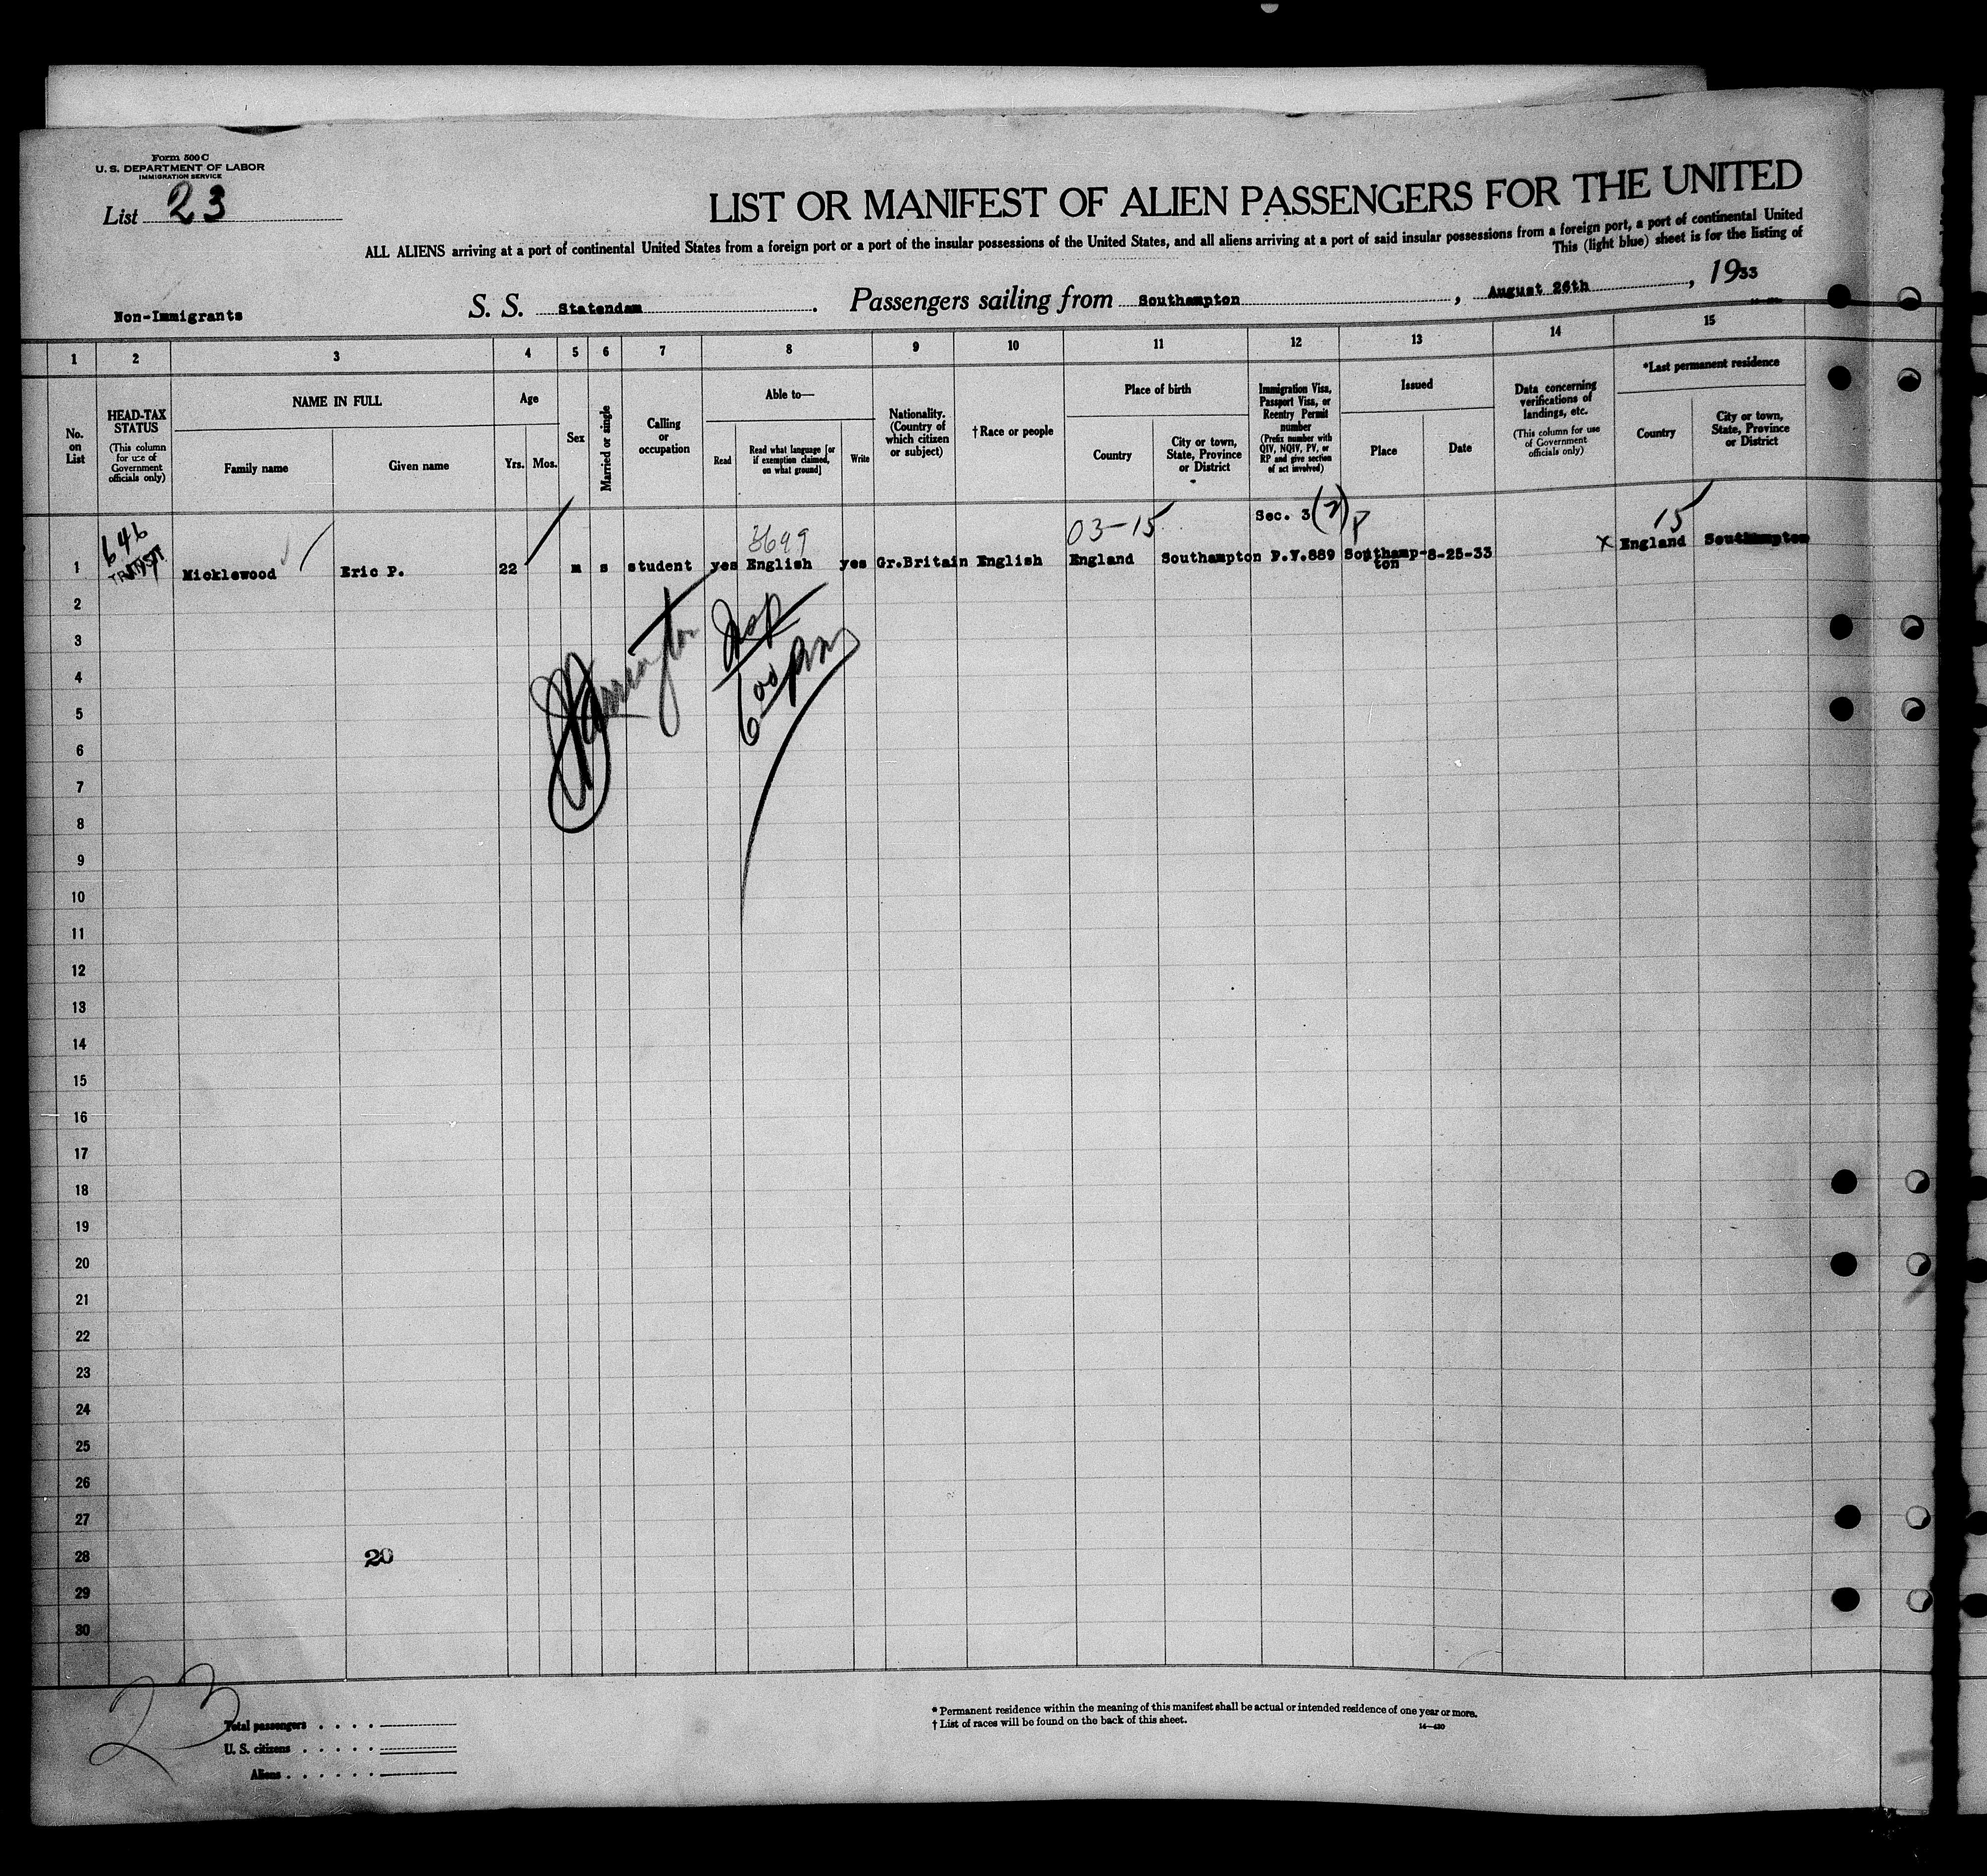 Form 500 C
U. S. DEPARTMENT OF LABOR
IMMIGRATION SERVICE
List 23
LIST OR MANIFEST OF ALIEN PASSENGERS FOR THE UNITED
ALL ALIENS arriving at a port of continental United States from a foreign port or a port of the insular possessions of the United States, and all aliens arriving at a port of said insular possessions from a foreign port, a port of continental United
This (light blue) sheet is for the listing of
Non-Immigrants S. S. Statendam. Passengers sailing from Southampton, August 26th, 1933
1 2 3 4 5 6 7 8 9 10 11 12 13 14 15
No. on List
HEAD-TAX STATUS
(This column for use of Government officials only)
NAME IN FULL
Family name Given name
Age
Yrs. Mos.
Sex
Married or single
Calling or occupation
Able to—
Read
Read what language [or if exemption claimed, on what ground]
Write
Nationality. (Country of which citizen or subject)
†Race or people
Place of birth
Country
City or town, State, Province or District
Immigration Visa, Passport Visa, or Reentry Permit number
(Prefix number with QIV, NQIV, PV, or RP and give section of act involved)
Issued
Place Date
Data concerning verifications of landings, etc.
(This column for use of Government officials only)
*Last permanent residence
Country
City or town, State, Province or District
646 3699 03-15 Sec. 3 15
TRANSIT
1 Micklewood Eric P. 22 m s student yes English yes Gr.Britain English England Southampton P.V.889 Southamp-ton 8-25-33 x England Southampton
2
3
4
5
6
7
8
9
10
11
12
13
14
15
16
17
18
19
20
21
22
23
24
25
26
27
28 20
29
30
23
Total passengers
U. S. citizens
Aliens
* Permanent residence within the meaning of this manifest shall be actual or intended residence of one year or more.
† List of races will be found on the back of this sheet.
14—420